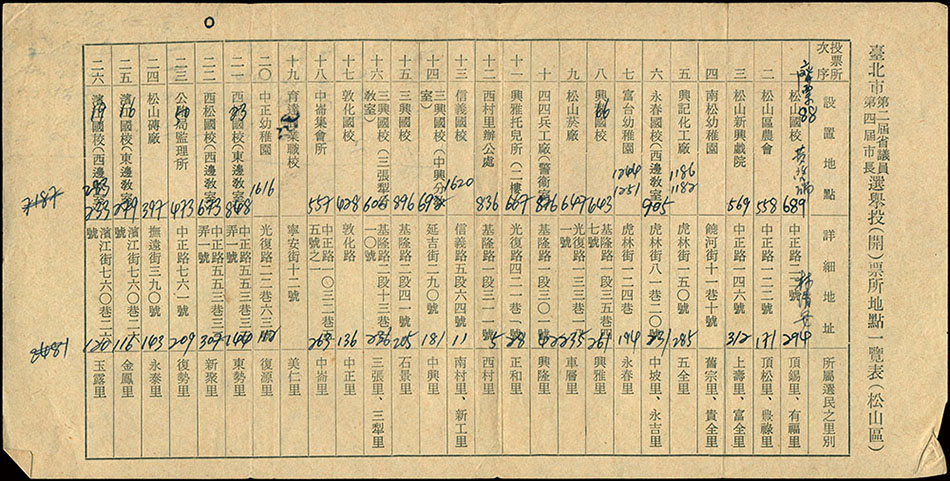 臺北市第二屆省議員第四屆市長選舉投(開)票所地點一覽表(松山區)
投票所次序 設置地點 詳細地址 所屬選民之里別
一 松山國校 689 中正路二 號 294 頂錫里、有福里
二 松山區農會 558 中正路一二二號 171 頂松里、農祿里
三 松山新興戲院 569 中正路一四六號 312 上壽里、富全里
四 南松幼稚園 饒河街十一號 舊宗里、貴全里
五 興記化工廠 1186 1182 虎林街一五〇號 285 五全里
六 永春國校(西邊教室) 905 虎林街八一巷二〇號 中坡里、永吉里
七 富台幼稚園 1244 1251 虎林街一二四巷 194 永春里
八 興雅國校 643 基隆路一段三五四巷七號 261 興雅里
九 松山菸廠 647 光復路一三三巷一號 235 車層里
十 四四兵工廠(警衛室) 876 基隆路一段三〇一號 422 興隆里
十一 興雅托兒所(二樓) 667 光復路四二一巷一號 28 正和里
十二 西村里辦公處 836 基隆路一段三一一號 5 西村里
十三 信義國校 1620 信義路五段六四號 11 南村里、新工里
十四 三興國校(中興分教室) 698 延吉街二九〇號 181 中興里
十五 三興國校 896 基隆路二段四一號 205 石景里
十六 三興國校(三張犁分教室) 608 基隆路二段十三巷一〇號 236 三張里、三犁里
十七 敦化國校 428 敦化路 136 中正里
十八 中崙集會所 557 中正路一〇三二巷三五號之一 263 中崙里
十九 育達商業職校 寧安街十二號 美仁里
二〇 中正幼稚園 1616 光復路二二巷六二 復源里
二一 西松國校(東邊教室) 83 848 中正路五五三巷三三弄一號 244 東勢里
二二 西松國校(西邊教室) 693 中正路五五三巷三三弄一號 307 新聚里
二三 公路局監理所 473 中正路七六一號 209 復勢里
二四 松山磚廠 397 撫遠街三九〇號 143 永泰里
二五 濱江國校(東邊教室) 299 濱江街七六〇巷二六號 116 金鳳里
二六 濱江國校(西邊教室) 233 濱江街七六〇巷二六號 120 玉露里